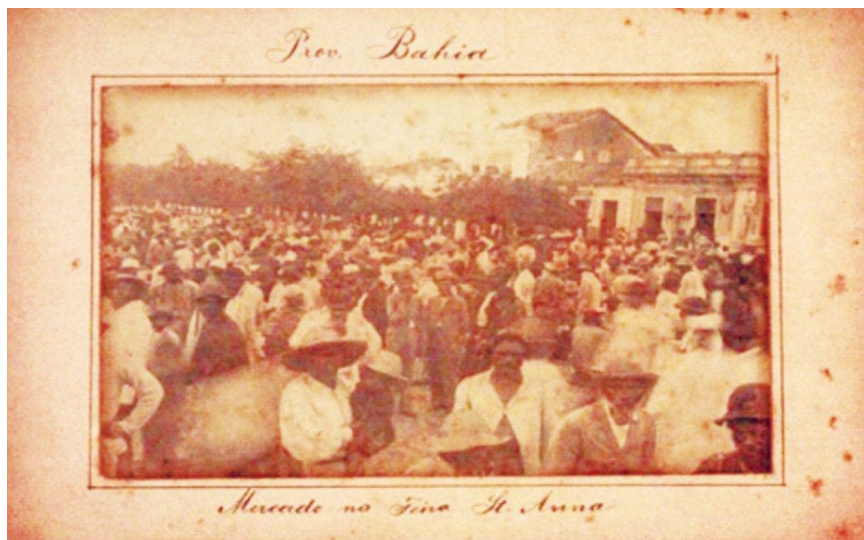 Prov. Bahia
Mercado no Feira St. Anna